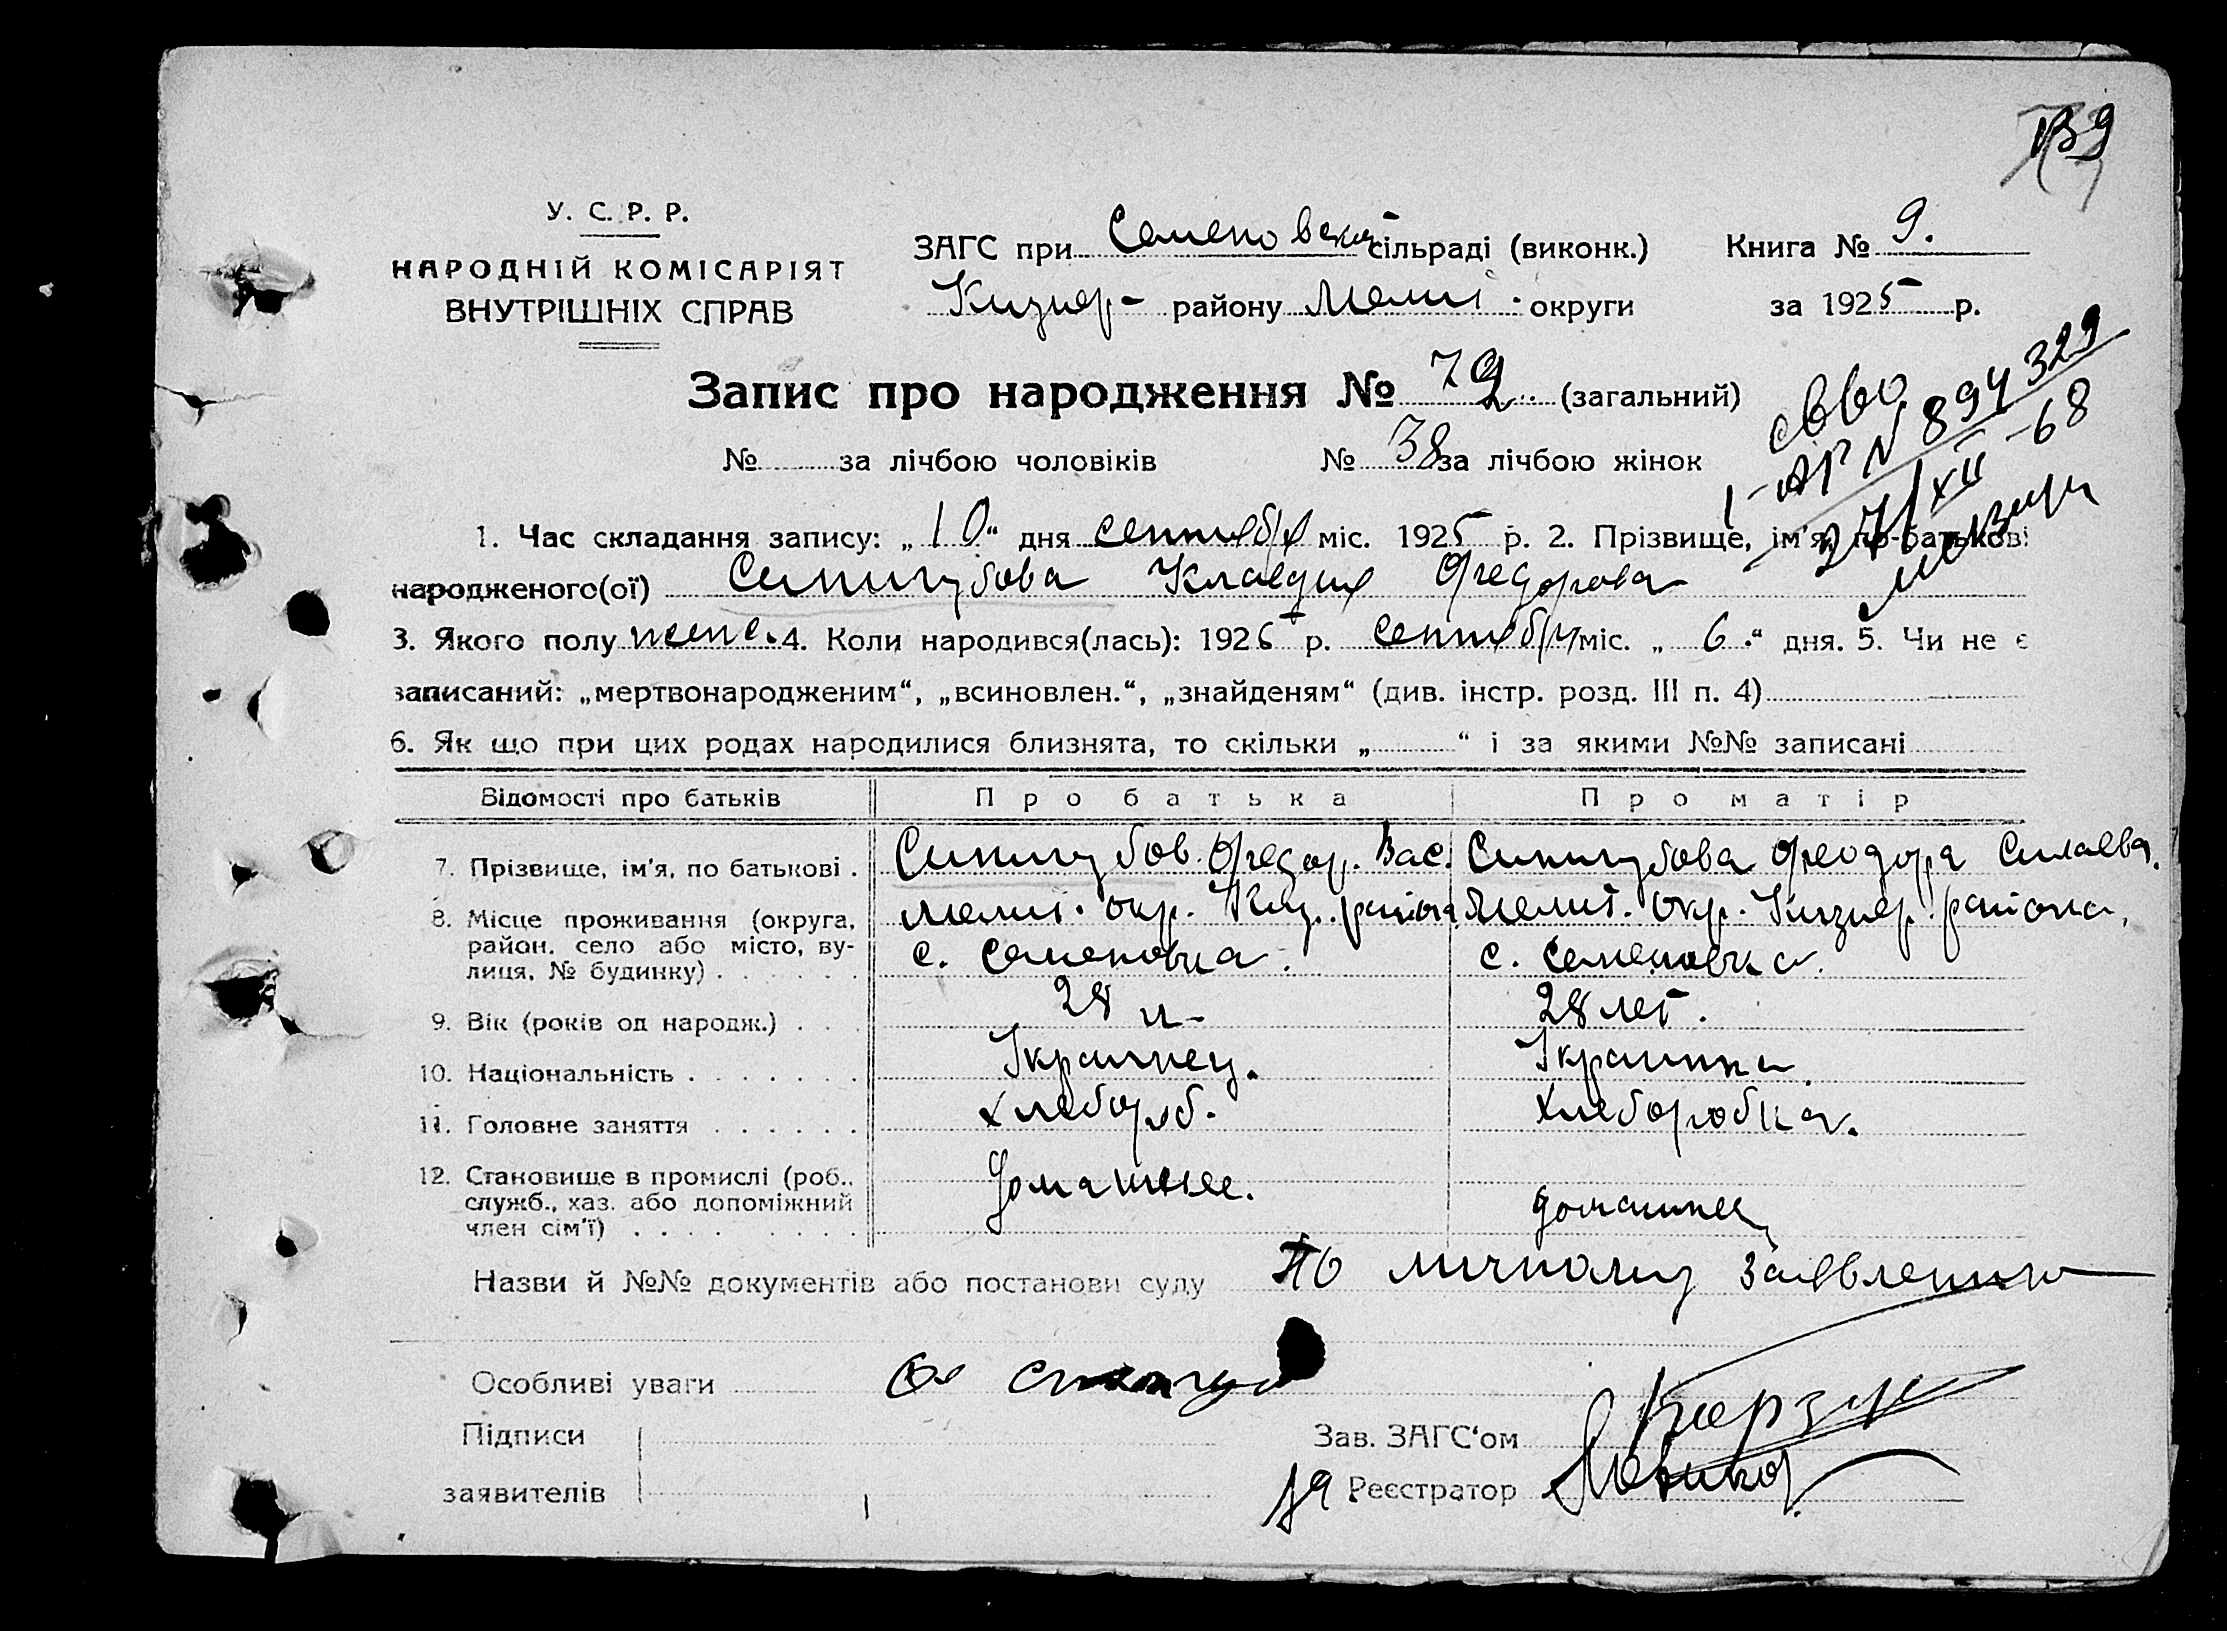 139
У. С. Р. Р.
НАРОДНІЙ КОМІСАРІЯТ
ВНУТРІШНІХ СПРАВ
ЗАГС при Семеновской сільраді (виконк.) Книга № 9.
Кизияр- району Мелит. округи за 1925 р.
Запис про народження № 79 (загальний)
№ за лічбою чоловіків № 38 за лічбою жінок
свво
1-АР N 894329
27/XII-68
1. Час складання запису: „10“ дня сентября міс. 1925 р. 2. Прізвище, ім'я, по-батькові
народженого(ої) Синигубова Клавдия Федорова
3. Якого полу женс. 4. Коли народився(лась): 1925 р. сентября міс. „6.“ дня. 5. Чи не є
записаний: „мертвонародженим“, „всиновлен.“, „знайденям“ (див. інстр. розд. III п. 4)
6. Як що при цих родах народилися близнята, то скільки „ “ і за якими №№ записані
Відомості про батьків Про батька Про матір
7. Прізвище, ім'я, по батькові . Синигубов. Федор. Вас. Синигубова Феодора Силаева.
8. Місце проживання (округа, район, село або місто, вулиця, № будинку) Мелит. окр. Киз. района с. Семеновка. Мелит. окр. Кизияр. района, с. Семеновка.
9. Вік (років од народж.) 28 л- 28 лет.
10. Національність Украинец. Украинка.
11. Головне заняття хлебороб. хлеборобка.
12. Становище в промислі (роб., служб., хаз. або допоміжний член сім'ї) Домашнее.
Назви й №№ документів або постанови суду По личному заявлению
Особливі уваги
Підписи
заявителів
Зав. ЗАГС'ом
за Реєстратор